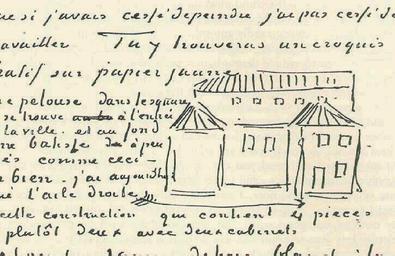 que si j'avais cessé de peindre j'ai pas cessé de
travailler Tu y trouveras un croquis
hatif sur papier jaune
pelouse dans le square
se trouve à l'entrée
la ville. et au fond
batisse à peu
comme ceci -
bien. j'ai aujourdhui
l'aile droite
cette construction qui contient 4 pieces
plutôt deux avec deux cabinets